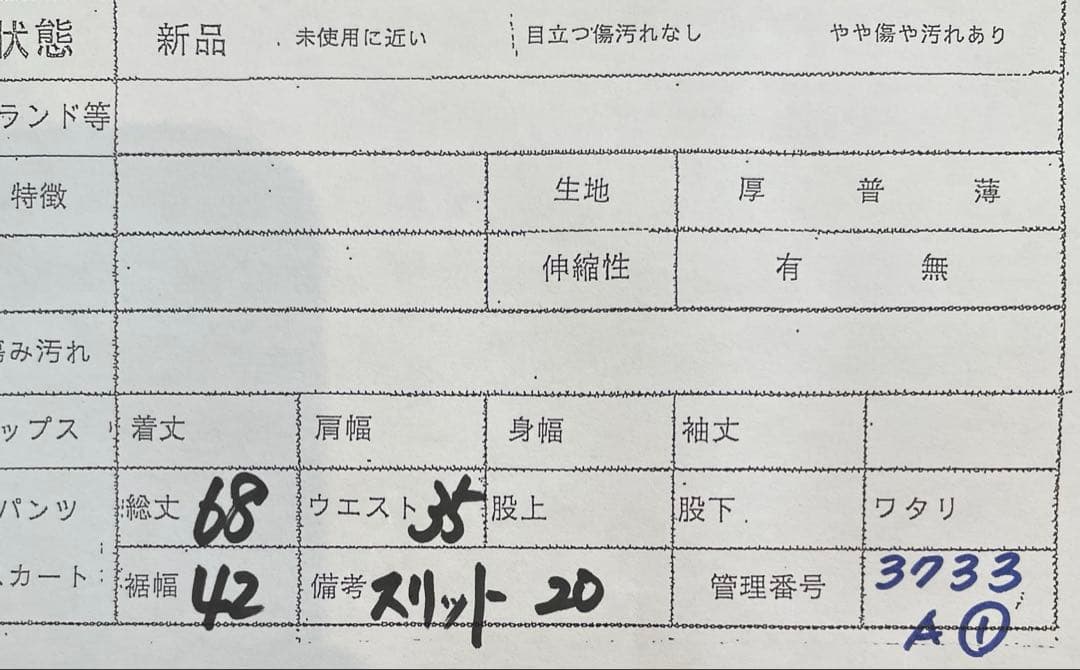 状態 新品 未使用に近い 目立つ傷汚れなし やや傷や汚れあり
ランド等
特徴 生地 厚 普 薄
伸縮性 有 無
傷み汚れ
ップス 着丈 肩幅 身幅 袖丈
パンツ 総丈 68 ウエスト 35 股上 股下 ワタリ
スカート 裾幅 42 備考 スリット 20 管理番号 3733
A ①